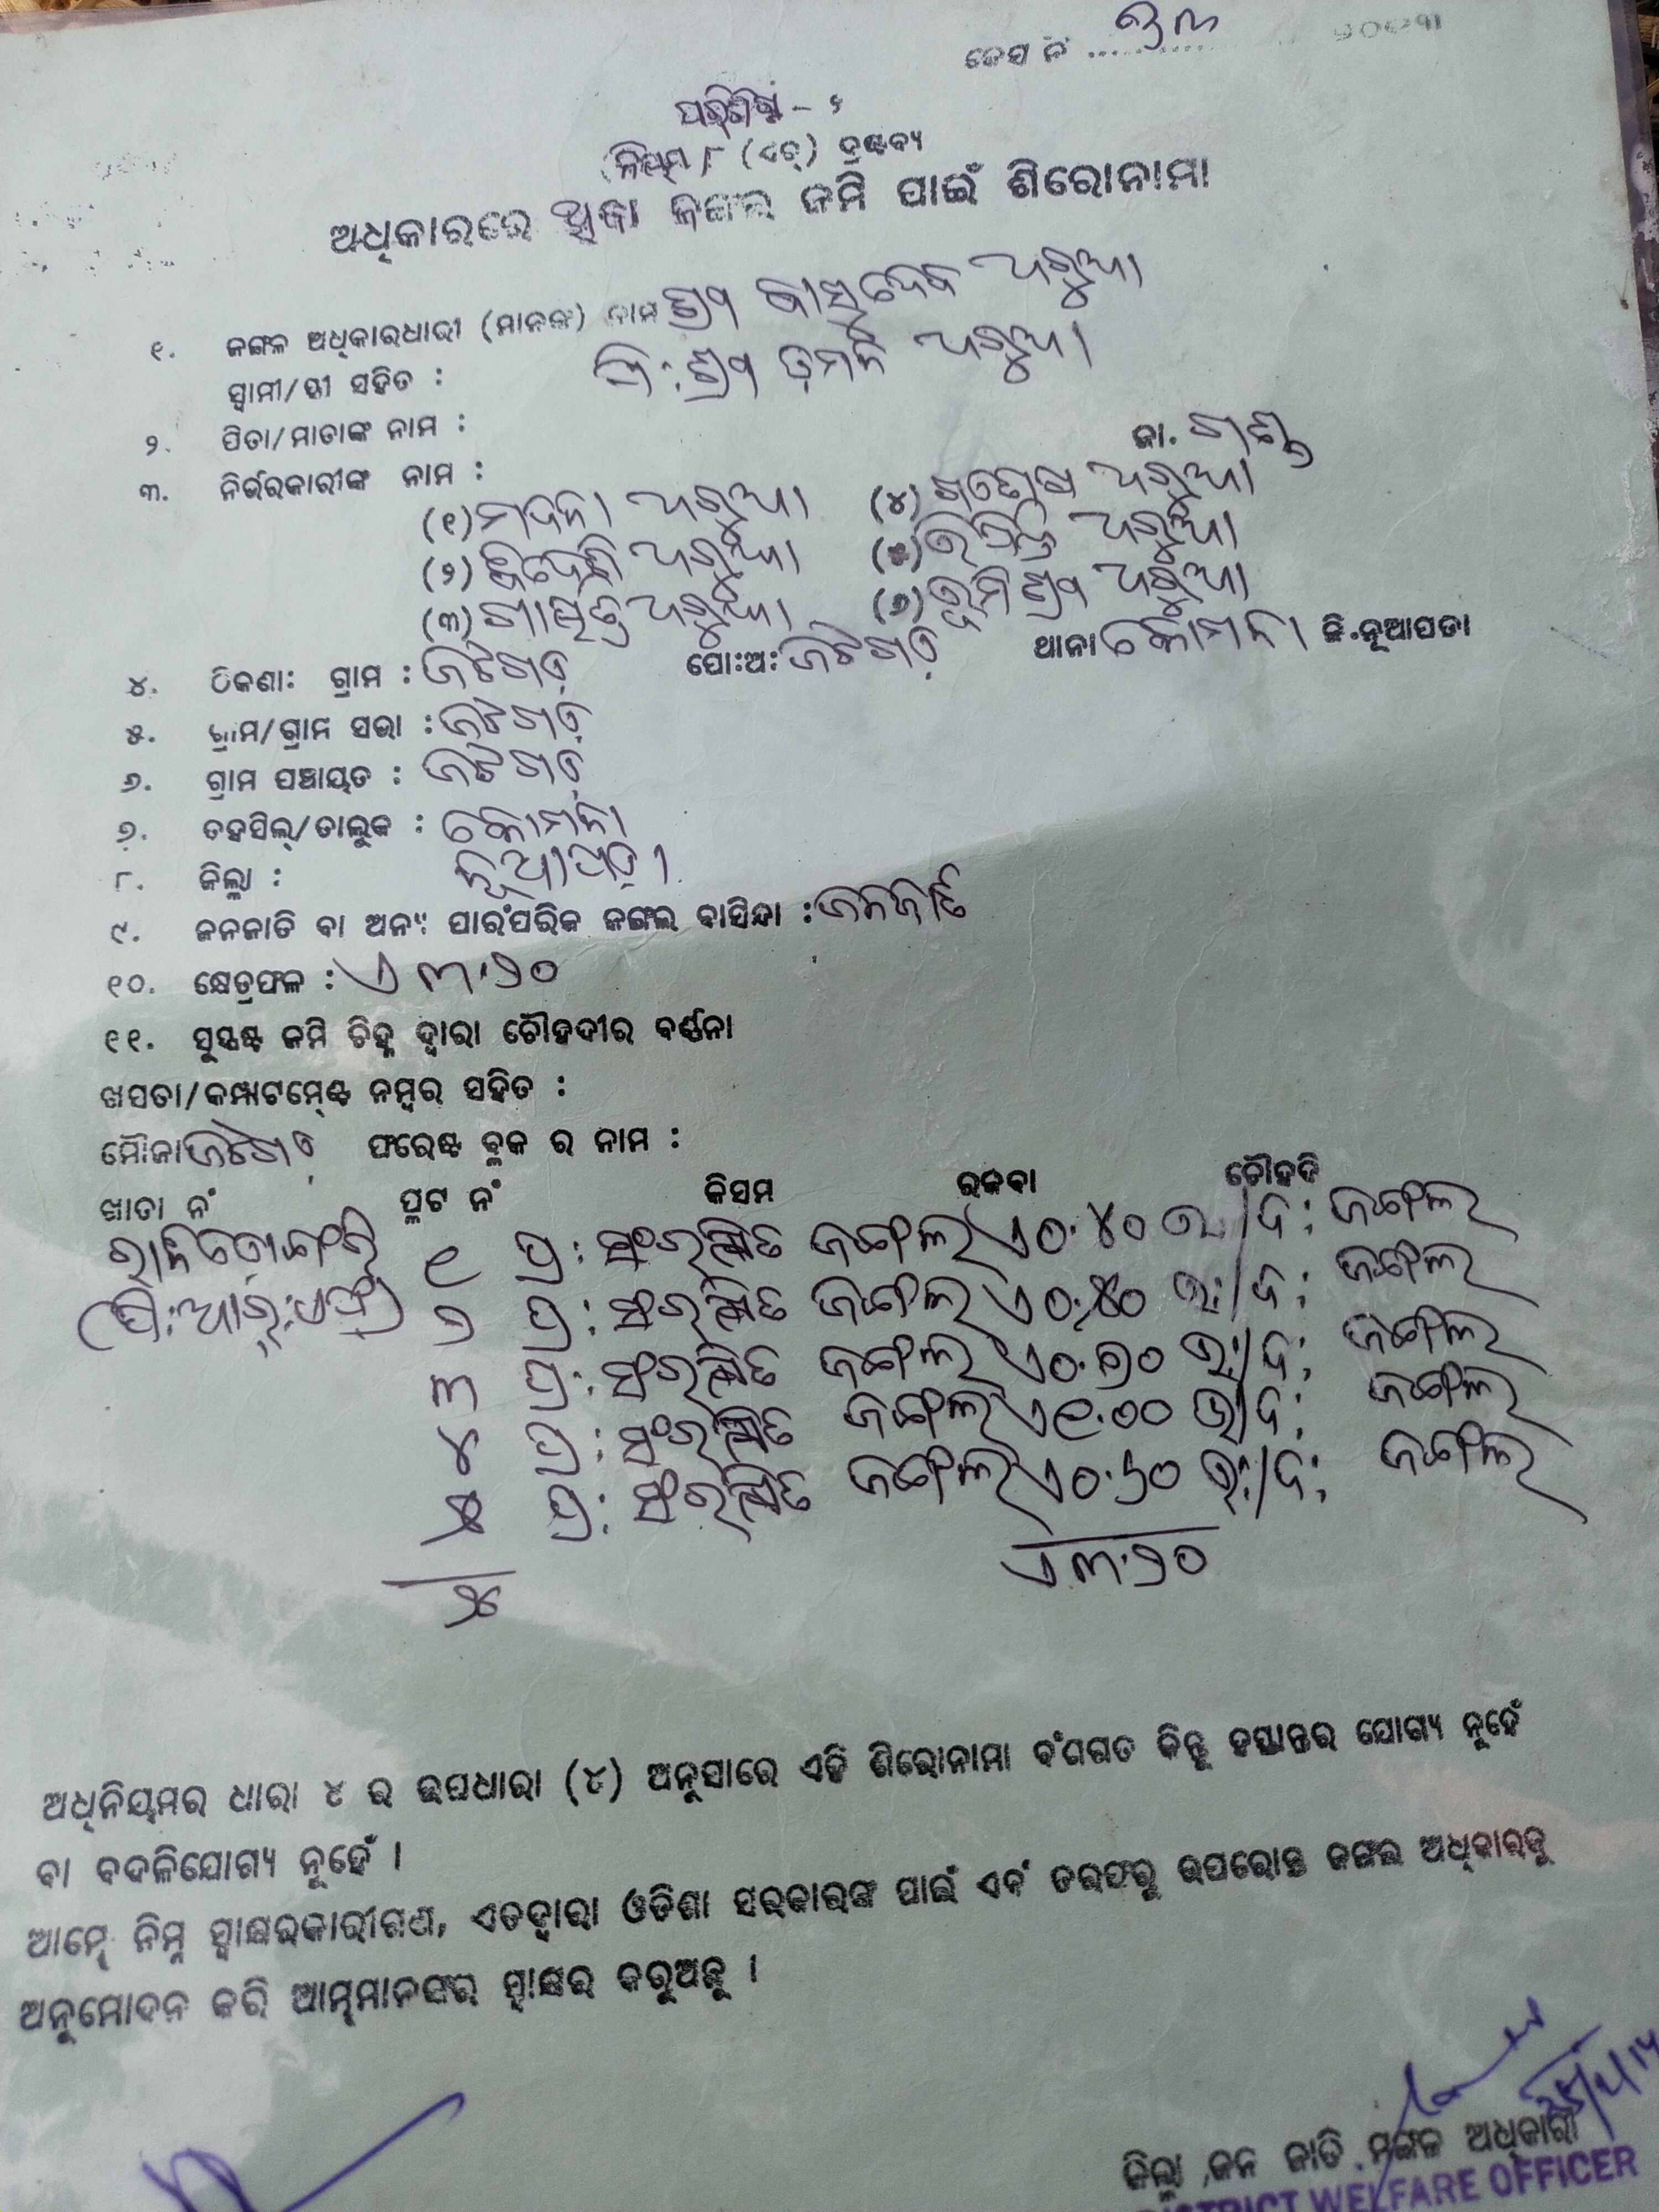 କେସ ନଂ ........ ୭୩
ପରିଶିଷ୍ଟ - ୨
(ନିୟମ ୮ (ଏଚ୍) ଦ୍ରଷ୍ଟବ୍ୟ
ଅଧିକାରରେ ଥିବା ଜଙ୍ଗଲ ଜମି ପାଇଁ ଶିରୋନାମା
୧. ଜଙ୍ଗଳ ଅଧିକାରଧାରୀ (ମାନଙ୍କ) ନାମ ବାସୁଦେବ ପରୁଆ
ସ୍ୱାମୀ/ସ୍ତ୍ରୀ ସହିତ : ପି:
୨. ପିତା/ମାତାଙ୍କ ନାମ :
ଜା. ଗଣ୍ଡ
୩. ନିର୍ଭରକାରୀଙ୍କ ନାମ :
(୧) ମଦନା ପରୁଆ (୪) ସନ୍ତୋଷ ପରୁଆ
(୨) ପରୁଆ (୫) ପରୁଆ
(୩) ପରୁଆ (୬) ପରୁଆ
୪. ଠିକଣା: ଗ୍ରାମ : ଜଟଗଡ଼ ପୋ:ଅ: ଜଟଗଡ଼ ଥାନା କୋମନା ଜି.ନୂଆପଡା
୫. ଗ୍ରାମ/ଗ୍ରାମ ସଭା : ଜଟଗଡ଼
୬. ଗ୍ରାମ ପଞ୍ଚାୟତ : ଜଟଗଡ଼
୭. ତହସିଲ୍/ତାଲୁକ : କୋମନା
୮. ଜିଲ୍ଲା : ନୂଆପଡ଼ା
୯. ଜନଜାତି ବା ଅନ୍ୟ ପାରଂପରିକ ଜଙ୍ଗଲ ବାସିନ୍ଦା : ଜନଜାତି
୧୦. କ୍ଷେତ୍ରଫଳ : ଏ ୩.୨୦
୧୧. ସୁସ୍ପଷ୍ଟ ଜମି ଚିହ୍ନ ଦ୍ୱାରା ଚୌହଦୀର ବର୍ଣ୍ଣନା
ଖସଡା/କମ୍ପାଟମେଣ୍ଟ ନମ୍ବର ସହିତ :
ମୌଜା ଜଟଗଡ଼ ଫରେଷ୍ଟ ବ୍ଲକ ର ନାମ :
ଖାତା ନଂ ପ୍ଲଟ ନଂ କିସମ ରକବା ଚୌହଦି
୧ ପ୍ର: ସଂରକ୍ଷିତ ଜଙ୍ଗଲ ଏ ୦.୪୦ ଉ:/ଦ: ଜଙ୍ଗଲ
(ପି:ଆର୍:ଏଫ୍) ୨ ପ୍ର: ସଂରକ୍ଷିତ ଜଙ୍ଗଲ ଉ:/ଦ: ଜଙ୍ଗଲ
୩ ପ୍ର: ସଂରକ୍ଷିତ ଜଙ୍ଗଲ ଏ ୦.୭୦ ଉ:/ଦ: ଜଙ୍ଗଲ
୪ ପ୍ର: ସଂରକ୍ଷିତ ଜଙ୍ଗଲ ଉ:/ଦ: ଜଙ୍ଗଲ
୫ ପ୍ର: ସଂରକ୍ଷିତ ଜଙ୍ଗଲ ଉ:/ଦ: ଜଙ୍ଗଲ
୫ ଏ ୩.୨୦
ଅଧିନିୟମର ଧାରା ୪ ର ଉପଧାରା (୪) ଅନୁସାରେ ଏହି ଶିରୋନାମା ବଂଶଗତ କିନ୍ତୁ ହସ୍ତାନ୍ତର ଯୋଗ୍ୟ ନୁହେଁ
ବା ବଦଳିଯୋଗ୍ୟ ନୁହେଁ ।
ଆମ୍ଭେ ନିମ୍ନ ସ୍ୱାକ୍ଷରକାରୀଗଣ, ଏତଦ୍ୱାରା ଓଡିଶା ସରକାରଙ୍କ ପାଇଁ ଏବଂ ତରଫରୁ ଉପରୋକ୍ତ ଜଙ୍ଗଲ ଅଧିକାରକୁ
ଅନୁମୋଦନ କରି ଆମ୍ଭମାନଙ୍କର ସ୍ୱାକ୍ଷର କରୁଅଛୁ ।
ଜିଲ୍ଲା ଜନ ଜାତି ମଙ୍ଗଳ ଅଧିକାରୀ
DISTRICT WELFARE OFFICER